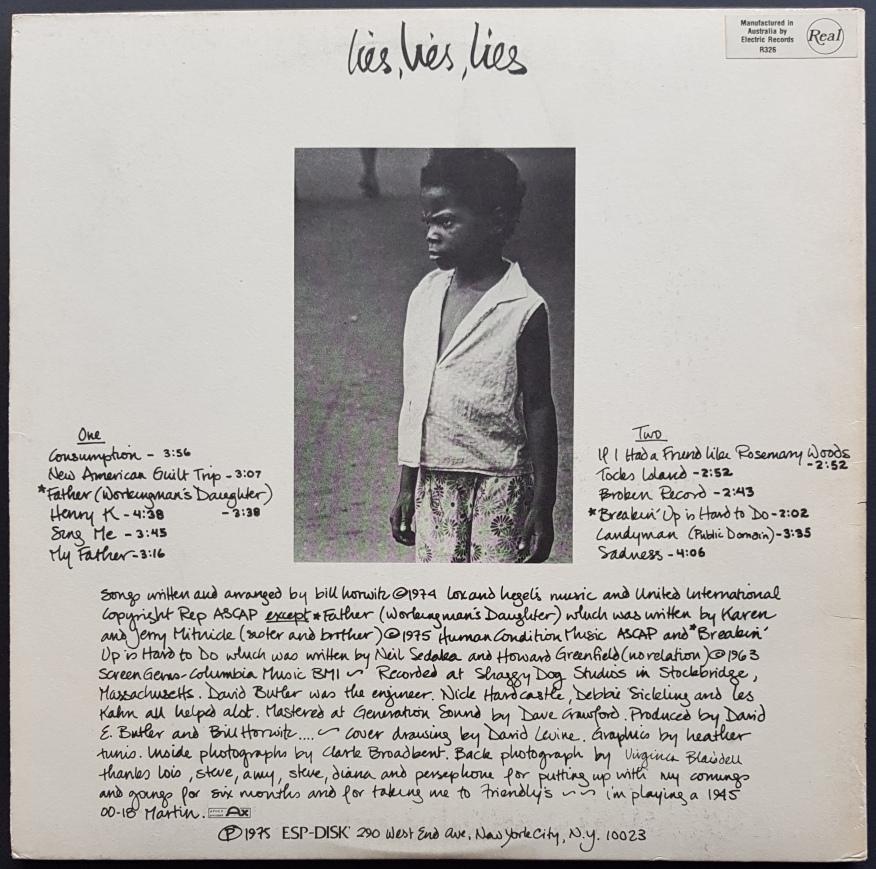 lies, lies, lies
Manufactured in
Australia by
Electric Records
R326
Real
One
Consumption - 3:56
New American Guilt Trip - 3:07
*Father (Workingman's Daughter)
- 3:38
Henry K - 4:38
Sing Me - 3:45
My Father - 3:16
Two
If I Had a Friend like Rosemary Woods
- 2:52
Tocks Island - 2:52
Broken Record - 2:43
*Breakin' Up is Hard to Do - 2:02
Candyman (Public Domain) - 3:35
Sadness - 4:06
Songs written and arranged by bill horwitz ©1974 Lox and hegel's music and United International
Copyright Rep ASCAP except *Father (Workingman's Daughter) which was written by Karen
and Jerry Mitnick (sister and brother) ©1975 Human Condition Music ASCAP and *Breakin'
Up is Hard to Do which was written by Neil Sedaka and Howard Greenfield (no relation) ©1963
Screen Gems-Columbia Music BMI ~ Recorded at Shaggy Dog Studios in Stockbridge,
Massachusetts. David Butler was the engineer. Nick Hardcastle, Debbie Sickling and Les
Kahn all helped alot. Mastered at Generation Sound by Dave Crawford. Produced by David
E. Butler and Bill Horwitz.... ~ cover drawing by David Levine. Graphics by heather
tunis. Inside photographs by Clark Broadbent. Back photograph by Virginia Blaisdell
thanks lois, steve, amy, steve, diana and persephone for putting up with my comings
and goings for six months and for taking me to Friendly's ~ ~ i'm playing a 1945
00-18 Martin.
℗1975 ESP-DISK' 290 West End Ave. New York City, N.Y. 10023